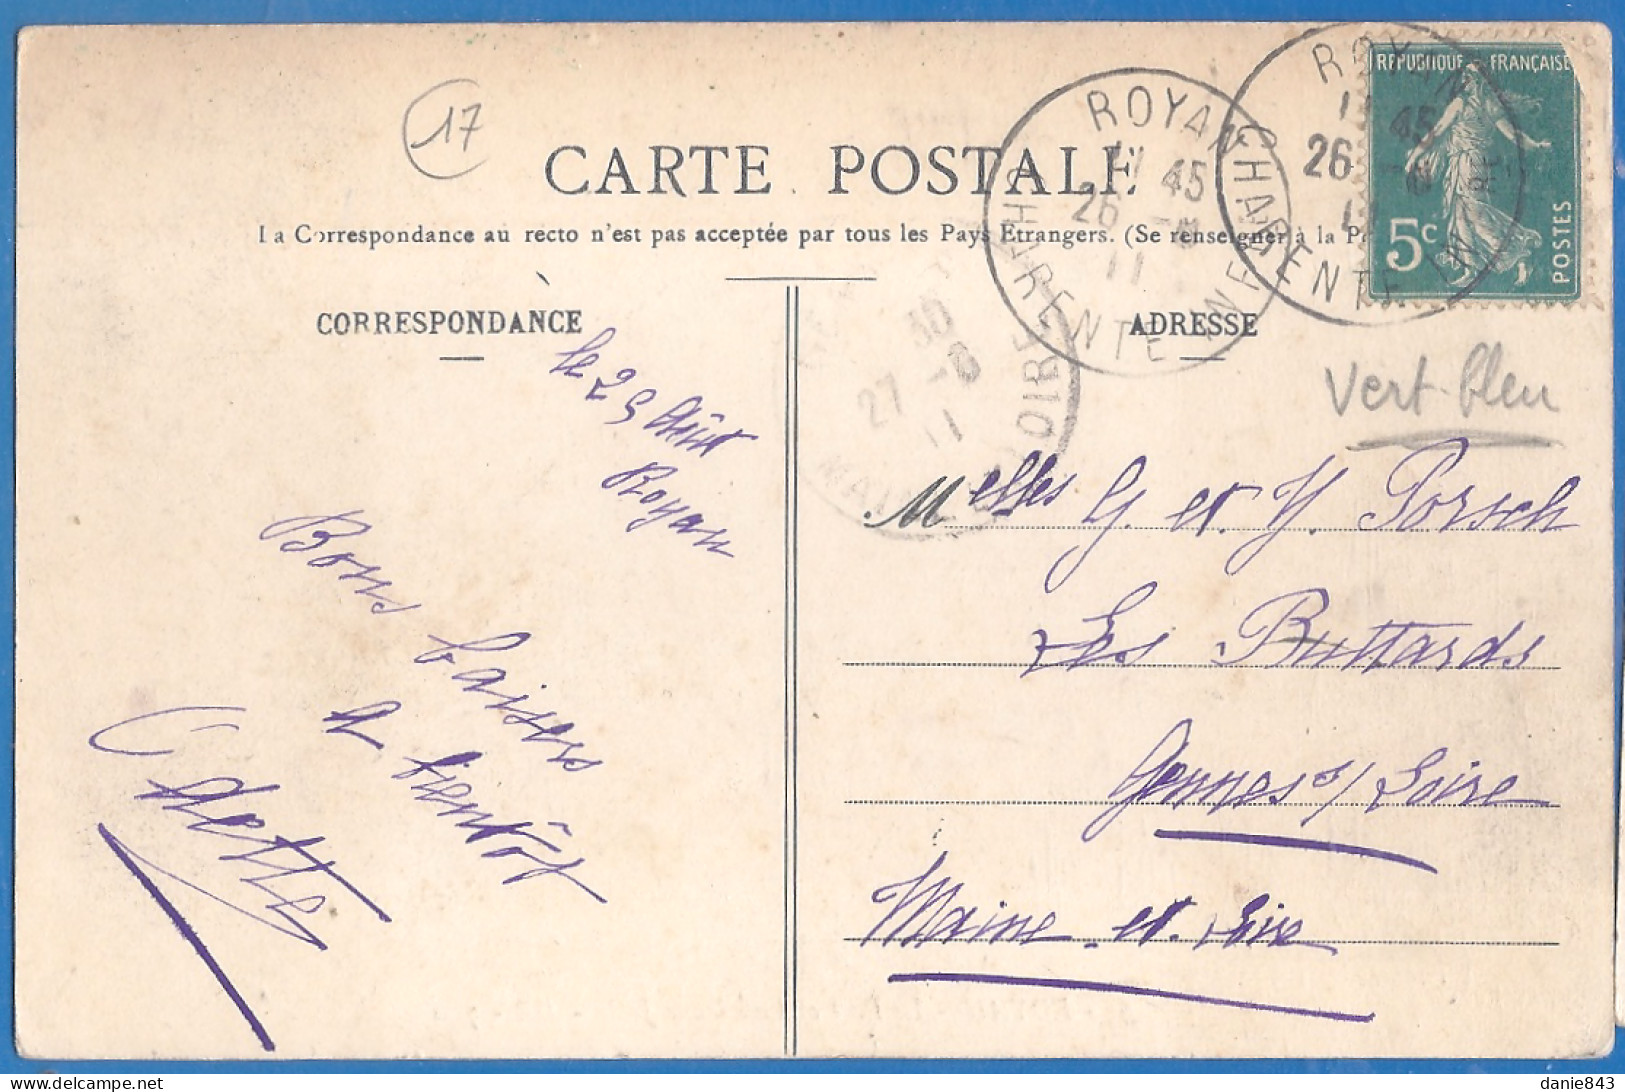 17
CARTE POSTALE
La Correspondance au recto n'est pas acceptée par tous les Pays Etrangers. (Se renseigner à la P
CORRESPONDANCE
ADRESSE
REPUBLIQUE FRANÇAISE
5c
POSTES
ROYAN
11 45
26 -8
11
CHARENTE INFRE
ROYAN
11 45
26 -8
11
CHARENTE INFRE
30
27 -8
11
MAINE LOIRE
Vert-bleu
le 25 Août
Royan
Bons baisers
a bientôt
Odette
Melles G. et Y. Porsch
Les Buttards
Gennes s/ Loire
Maine-et-Loire
danie843